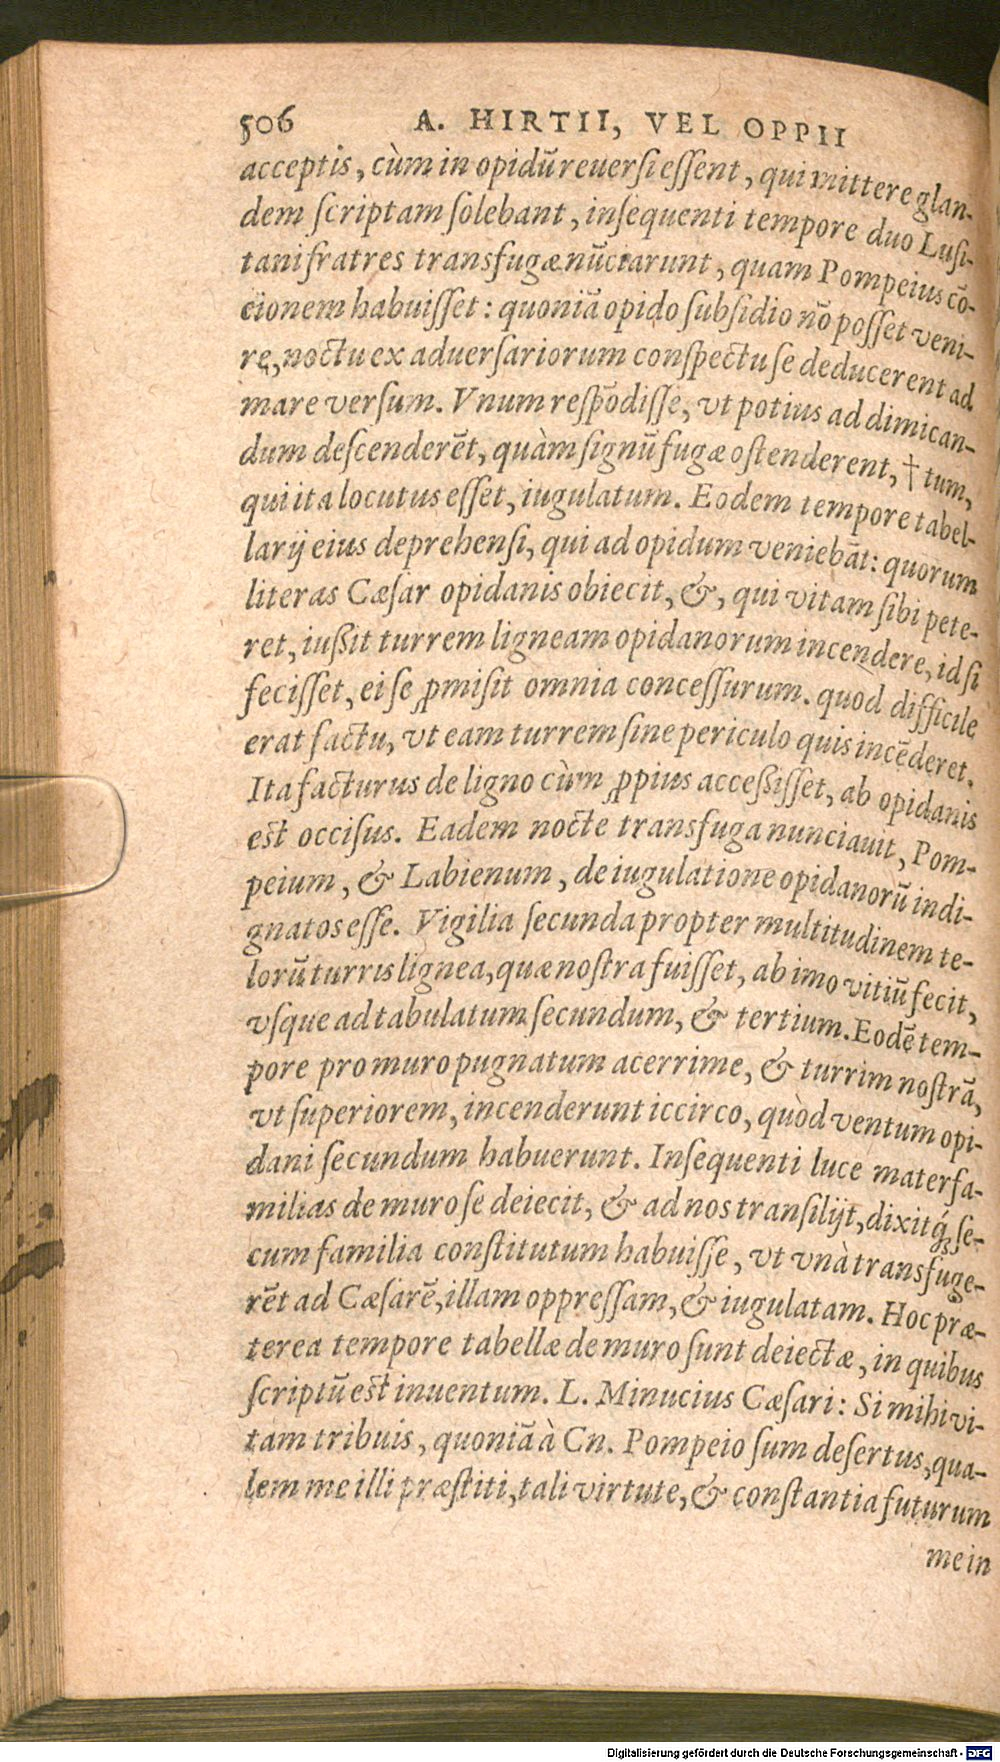 506 A. HIRTII, VEL OPPII
acceptis, cùm in opidũ reuersi essent, qui mittere glan-
dem scriptam solebant, insequenti tempore duo Lusi-
tani fratres transfugæ nũciarunt, quam Pompeius cõ-
cionem habuisset: quoniã opido subsidio nõ posset veni-
re, noctu ex aduersariorum conspectu se deducerent ad
mare versum. Vnum respõdisse, vt potius ad dimican-
dum descenderẽt, quàm signũ fugæ ostenderent, † tum,
qui ita locutus esset, iugulatum. Eodem tempore tabel-
larij eius deprehensi, qui ad opidum veniebãt: quorum
literas Cæsar opidanis obiecit, &, qui vitam sibi pete-
ret, iußit turrem ligneam opidanorum incendere, id si
fecisset, ei se ꝓmisit omnia concessurum. quod difficile
erat factu, vt eam turrem sine periculo quis incẽderet.
Ita facturus de ligno cùm ꝓpius acceßisset, ab opidanis
est occisus. Eadem nocte transfuga nunciauit, Pom-
peium, & Labienum, de iugulatione opidanorũ indi-
gnatos esse. Vigilia secunda propter multitudinem te-
lorũ turris lignea, quæ nostra fuisset, ab imo vitiũ fecit,
vsque ad tabulatum secundum, & tertium. Eodẽ tem-
pore pro muro pugnatum acerrime, & turrim nostrã,
vt superiorem, incenderunt iccirco, quòd ventum opi-
dani secundum habuerunt. Insequenti luce materfa-
milias de muro se deiecit, & ad nos transilijt, dixitq́; se-
cum familia constitutum habuisse, vt vnà transfuge-
rẽt ad Cæsarẽ, illam oppressam, & iugulatam. Hoc præ-
terea tempore tabellæ de muro sunt deiectæ, in quibus
scriptũ est inuentum. L. Minucius Cæsari: Si mihi vi-
tam tribuis, quoniã à Cn. Pompeio sum desertus, qua-
lem me illi præstiti, tali virtute, & constantia futurum
me in
Digitalisierung gefördert durch die Deutsche Forschungsgemeinschaft - DFG